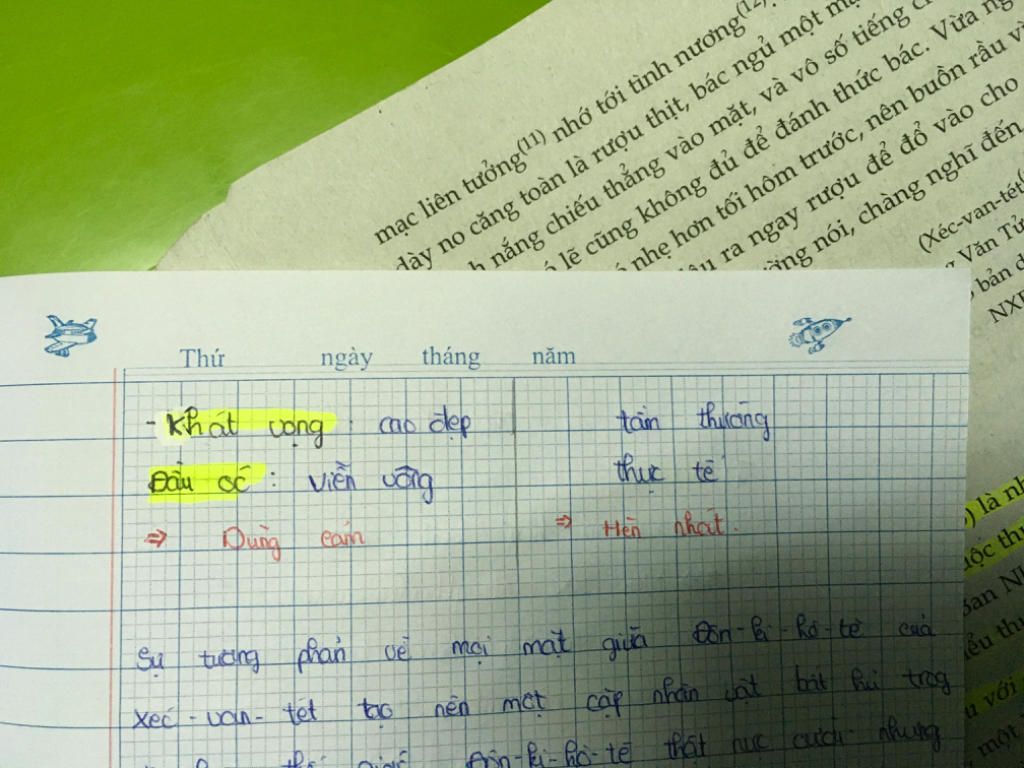 mạc liên tưởng(11) nhớ tới tình nương(12).
dày no căng toàn là rượu thịt, bác ngủ một
nắng chiếu thẳng vào mặt, và vô số tiếng
lẽ cũng không đủ để đánh thức bác. Vừa
nhẹ hơn tối hôm trước, nên buồn rầu
ra ngay rượu để đổ vào cho
nói, chàng nghĩ đến
(Xéc-van-tét
Văn Tử
bản
Thứ ngày tháng năm
- Khát vọng : cao đẹp tầm thường
Đầu óc : viễn vông thực tế
⇒ Dũng cảm ⇒ Hèn nhát.
Sự tương phản về mọi mặt giữa Đôn-ki-hô-tê của
Xéc-van-tét tạo nên một cặp nhân vật bất hủ trog
Đôn-ki-hô-tê thật nực cười nhưng
là
với
một